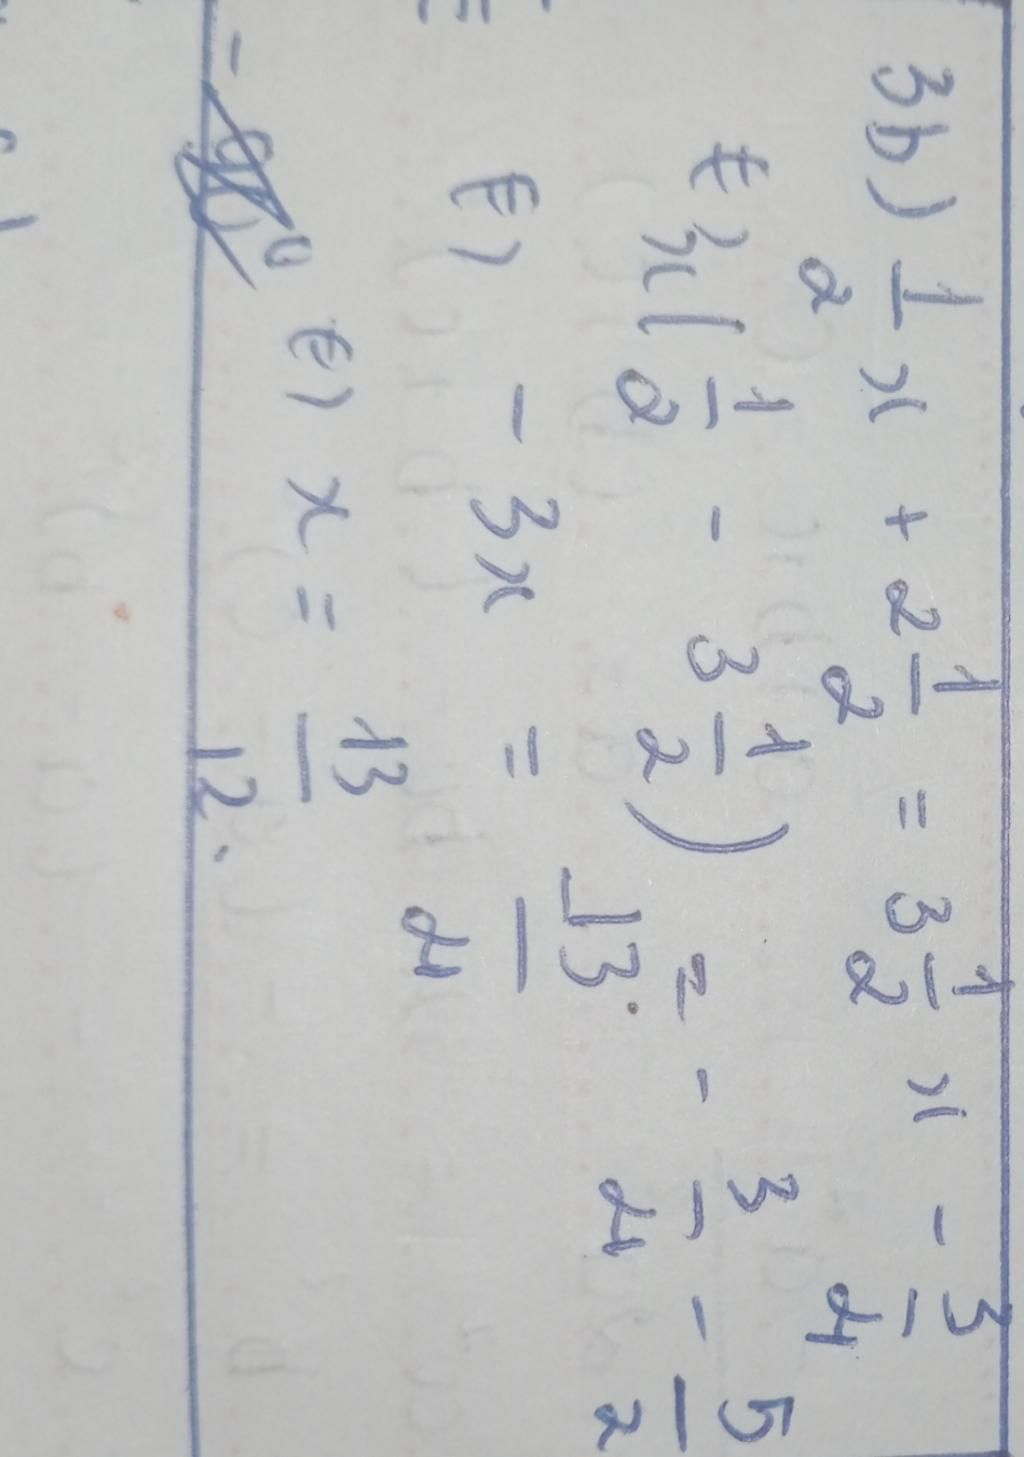 3b) 1/2 x + 2 1/2 = 3 1/2 x - 3/4
E) x ( 1/2 - 3 1/2 ) = - 3/4 - 5/2
E) - 3x = -13/4
E) x = 13/12.